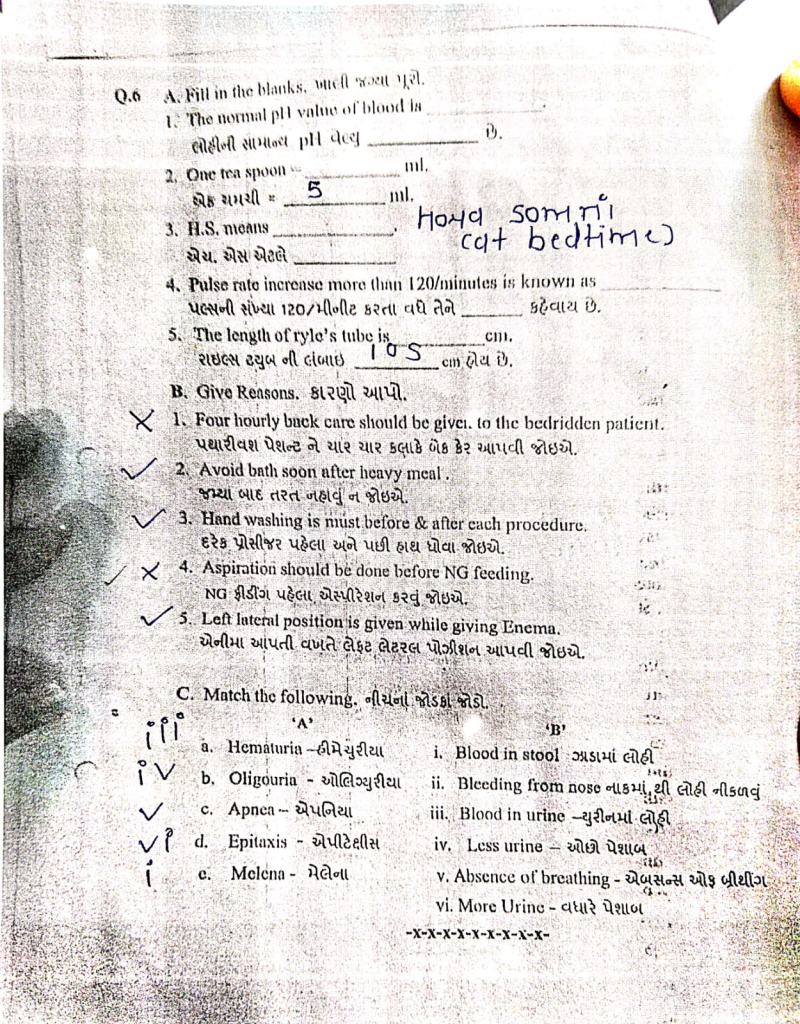 Q.6 A. Fill in the blanks. ખાલી જગ્યા પૂરો.
1. The normal pH value of blood is ____________.
લોહીની સામાન્ય pH વેલ્યુ ____________ છે.
2. One tea spoon = ____________ ml.
એક ચમચી = 5 ml.
3. H.S. means ____________.
Hova somni
(at bedtime)
એચ. એસ એટલે ____________
4. Pulse rate increase more than 120/minutes is known as ____________
પલ્સની સંખ્યા 120/મીનીટ કરતા વધે તેને ________ કહેવાય છે.
5. The length of ryle's tube is ____________ cm.
રાઇલ્સ ટયુબ ની લંબાઇ 105 cm હોય છે.
B. Give Reasons. કારણો આપો.
X 1. Four hourly back care should be given to the bedridden patient.
પથારીવશ પેશન્ટ ને ચાર ચાર કલાકે બેક કેર આપવી જોઇએ.
✓ 2. Avoid bath soon after heavy meal .
જમ્યા બાદ તરત નહાવું ન જોઇએ.
✓ 3. Hand washing is must before & after each procedure.
દરેક પ્રોસીજર પહેલા અને પછી હાથ ધોવા જોઇએ.
✓ X 4. Aspiration should be done before NG feeding.
NG ફીડીંગ પહેલા એસ્પીરેશન કરવું જોઇએ.
✓ 5. Left lateral position is given while giving Enema.
એનીમા આપતી વખતે લેફટ લેટરલ પોઝીશન આપવી જોઇએ.
C. Match the following. નીચેના જોડકા જોડો.
'A' 'B'
iii a. Hematuria –હીમેચુરીયા i. Blood in stool ઝાડામાં લોહી
iv b. Oligouria - ઓલિગ્યુરીયા ii. Bleeding from nose નાકમાં થી લોહી નીકળવું
v c. Apnea – એપનિયા iii. Blood in urine –યુરીનમાં લોહી
vi d. Epitaxis - એપીટેક્ષીસ iv. Less urine – ઓછો પેશાબ
i e. Melena - મેલેના v. Absence of breathing - એબસન્સ ઓફ બ્રીથીંગ
vi. More Urine - વધારે પેશાબ
-x-x-x-x-x-x-x-x-x-